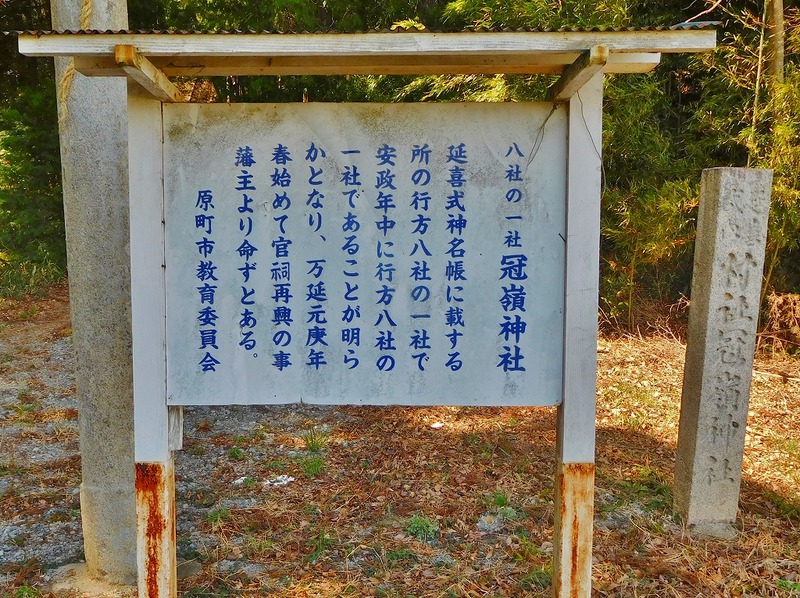 八社の一社 冠嶺神社
延喜式神名帳に載する
所の行方八社の一社で
安政年中に行方八社の
一社であることが明ら
かとなり、万延元庚年
春始めて官祠再興の事
藩主より命ずとある。
原町市教育委員会
村社冠嶺神社